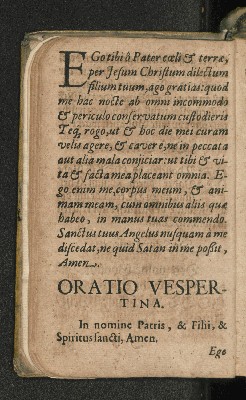 EGo tibi ô Pater cœli & terræ,
per Jesum Christum dilectum
filium tuum, ago gratias: quod
me hac nocte ab omni incommodo
& periculo conservatum custodieris
Teq́, rogo, ut & hoc die mei curam
velis agere, & cavere, ne in peccata
aut alia mala conjiciar: ut tibi & vi-
ta & facta mea placeant omnia. E-
go enim me, corpus meum, & ani-
mam meam, cum omnibus aliis quæ
habeo, in manus tuas commendo.
Sanctus tuus Angelus nusquam à me
discedat, ne quid Satan in me possit,
Amen.
ORATIO VESPER-
TINA.
In nomine Patris, & Filii, &
Spiritus sancti, Amen.
Ego